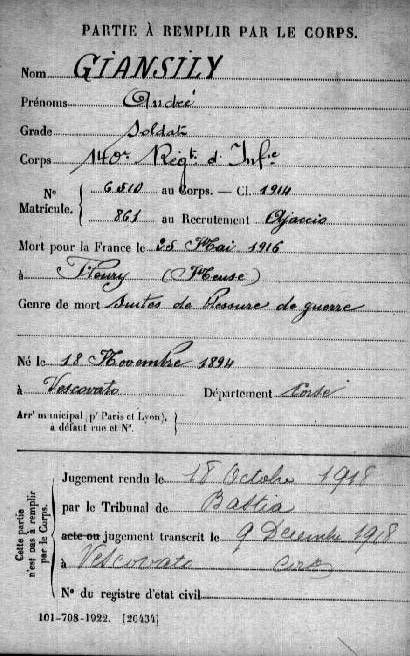 PARTIE À REMPLIR PAR LE CORPS.
Nom GIANSILY
Prénoms André
Grade Soldat
Corps 140e Régt d'Infie
N° Matricule. { 6510 au Corps. — Cl. 1914
861 au Recrutement Ajaccio
Mort pour la France le 25 Mai 1916
à Fleury (Meuse)
Genre de mort Suites de blessure de guerre
Né le 18 Novembre 1894
à Vescovato Département Corse
Arrt municipal (pr Paris et Lyon),
à défaut rue et N°.
Cette partie n'est pas à remplir par le Corps.
Jugement rendu le 18 Octobre 1918
par le Tribunal de Bastia
acte ou jugement transcrit le 9 Décembre 1918
à Vescovato Corse
N° du registre d'état civil
101-708-1922. [26434]